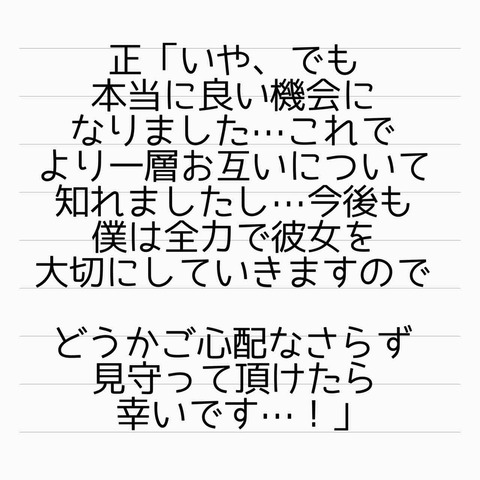 正「いや、でも
本当に良い機会に
なりました…これで
より一層お互いについて
知れましたし…今後も
僕は全力で彼女を
大切にしていきますので
どうかご心配なさらず
見守って頂けたら
幸いです…！」